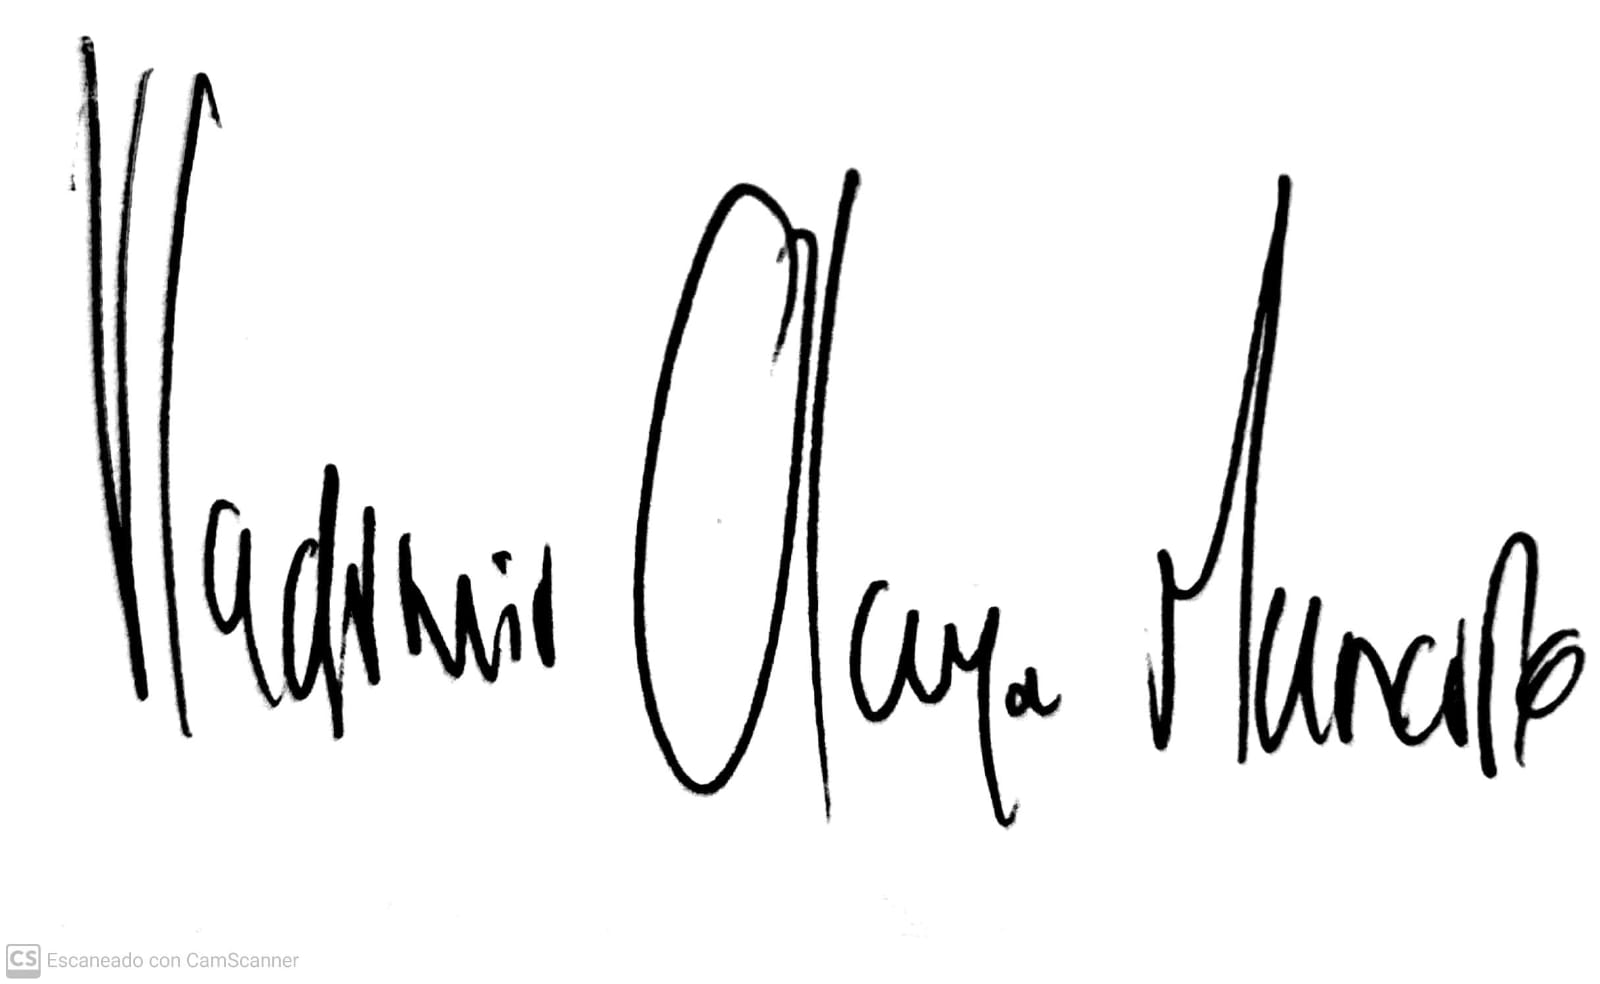 Vladimir Olaya Mancilla
CS Escaneado con CamScanner